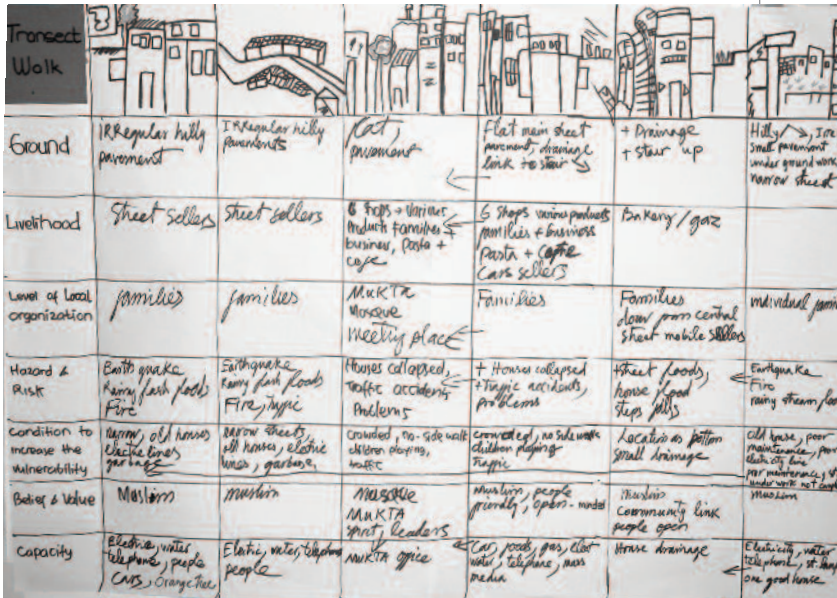 Transect
Walk
Ground
IRRegular hilly
pavement
IRRegular hilly
pavements
Flat,
pavement
Flat main street
pavement, drainage
link to stair
+ Drainage
+ stair up
Hilly
small pavement
under ground work
narrow street
Livelihood
Street sellers
street sellers
6 shops + various
Products families +
business, Pasta +
cafe
6 Shops various products
families + business
Pasta +
Cars sellers
Bakery / gaz
Level of Local
organization
families
families
MuKTA
Mosque
Meeting place
Families
Families
down from central
street mobile sellers
individual
Hazard &
Risk
Earth quake
Rainy flash floods
Fire
Earthquake
Rainy flash floods
Fire,
Houses collapsed,
Traffic accidents
Problems
+ Houses collapsed
+ Traffic accidents,
problems
+ street floods,
house flood
steps falls
Earthquake
Fire
rainy stream
Condition to
increase the
vulnerability
narrow, old houses
electric lines
garbage
narrow streets,
old houses, eletric
lines, garbage,
crowded, no-side walk
children playing,
traffic
crowded, no side walk
children playing
Traffic
Location as bottom
small drainage
old house, poor
maintenance, poor
electricity line
poor maintenance,
under work not
Belief & Value
Muslims
muslim
Mosque
MuKTA
spirit, leaders
Muslim, people
friendly, open-minded
muslim
community link
people open
muslim
Capacity
Electric, water
telephone, people
CARS, Orange tree
Eletric, water, telephone
people
MuKTA office
Car, foods, gas, elect
water, telephone, mass
media
House drainage
Electricity, water
telephone,
one good house